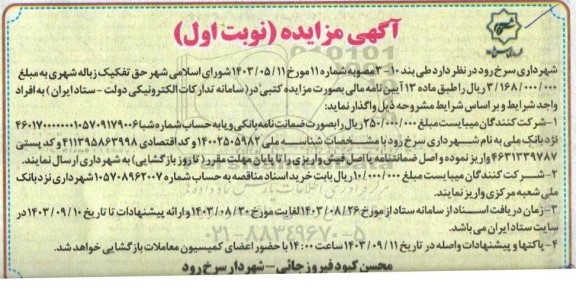 آگهی مزایده (نوبت اول)
شهرداری سرخ رود
شهرداری سرخ رود در نظر دارد طی بند ۱۰-۳ مصوبه شماره ۱۱ مورخ ۱۴۰۳/۰۵/۱۱ شورای اسلامی شهر حق تفکیک زباله شهری به مبلغ
۳/۱۶۸/۰۰۰/۰۰۰ ریال را طبق ماده ۱۳ آیین نامه مالی بصورت مزایده کتبی در (سامانه تدارکات الکترونیکی دولت - ستاد ایران) به افراد
واجد شرایط و بر اساس شرایط مشروحه ذیل واگذار نماید:
۱- شرکت کنندگان میبایست مبلغ ۲۵۰/۰۰۰/۰۰۰ ریال را بصورت ضمانت نامه بانکی و یا به حساب شماره شبا ۴۶۰۱۷۰۰۰۰۰۰۰۱۰۵۷۰۹۱۷۹۰۰۶
نزد بانک ملی به نام شهرداری سرخ رود با مشخصات شناسه ملی ۱۴۰۰۲۵۰۵۹۸۲ و کد اقتصادی ۴۱۱۳۹۵۸۶۳۹۹۸ و کد پستی
۴۶۳۱۳۳۹۷۸۷ واریز نموده و اصل ضمانتنامه یا اصل فیش واریزی را تا پایان مهلت مقرر (تا روز بازگشایی) به شهرداری ارسال نمایند.
۲- شرکت کنندگان میبایست مبلغ ۱۰/۰۰۰/۰۰۰ ریال بابت خرید اسناد مناقصه به حساب شماره ۰۱۰۵۷۰۸۹۶۲۰۰۷ شهرداری نزد بانک
ملی شعبه مرکزی واریز نمایند.
۳- زمان دریافت اسناد از سامانه ستاد از مورخ ۱۴۰۳/۰۸/۲۶ لغایت مورخ ۱۴۰۳/۰۸/۳۰ و ارائه پیشنهادات تا تاریخ ۱۴۰۳/۰۹/۱۰ در
سایت ستاد ایران می باشد.
۴- پاکتها و پیشنهادات واصله در تاریخ ۱۴۰۳/۰۹/۱۱ ساعت ۱۴:۰۰ با حضور اعضای کمیسیون معاملات بازگشایی خواهد شد.
محسن کبود فیروزجائی - شهردار سرخ رود
۰۲۱-۸۸۳۴۹۶۷۰-۵